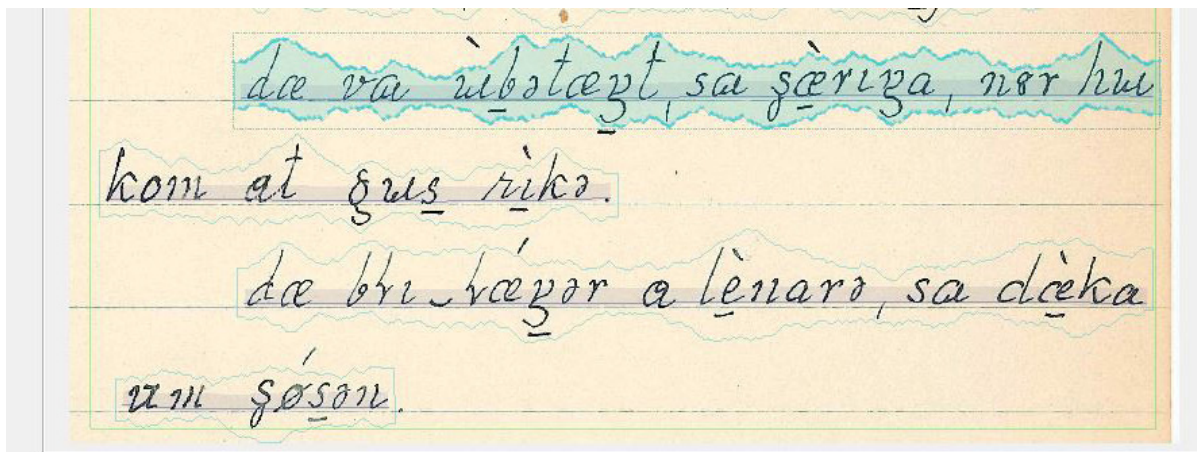 dæ va ùb̲ətæŋ̲t, sa ʂæ̲̀rıŋa, nɤr hu
kom at gus̲ rı̲̀kə.
dæ blı‿hǽŋ̲ər a lè̲narə, sa dæ̲̀ka
um ʂǿs̲ən.